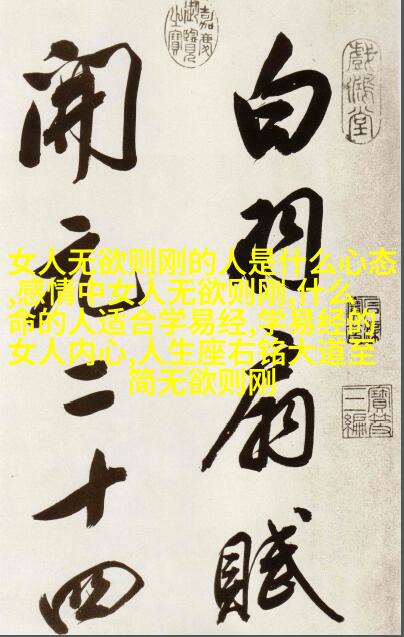 白羽扇賦
開元二十四
女人无欲则刚的人是什么心态
,感情中女人无欲则刚,什么
命的人适合学易经,学易经的
女人内心,人生座右铭大道至
简无欲则刚
嘉慶御覽之寶
戲鴻堂
寶笈三編